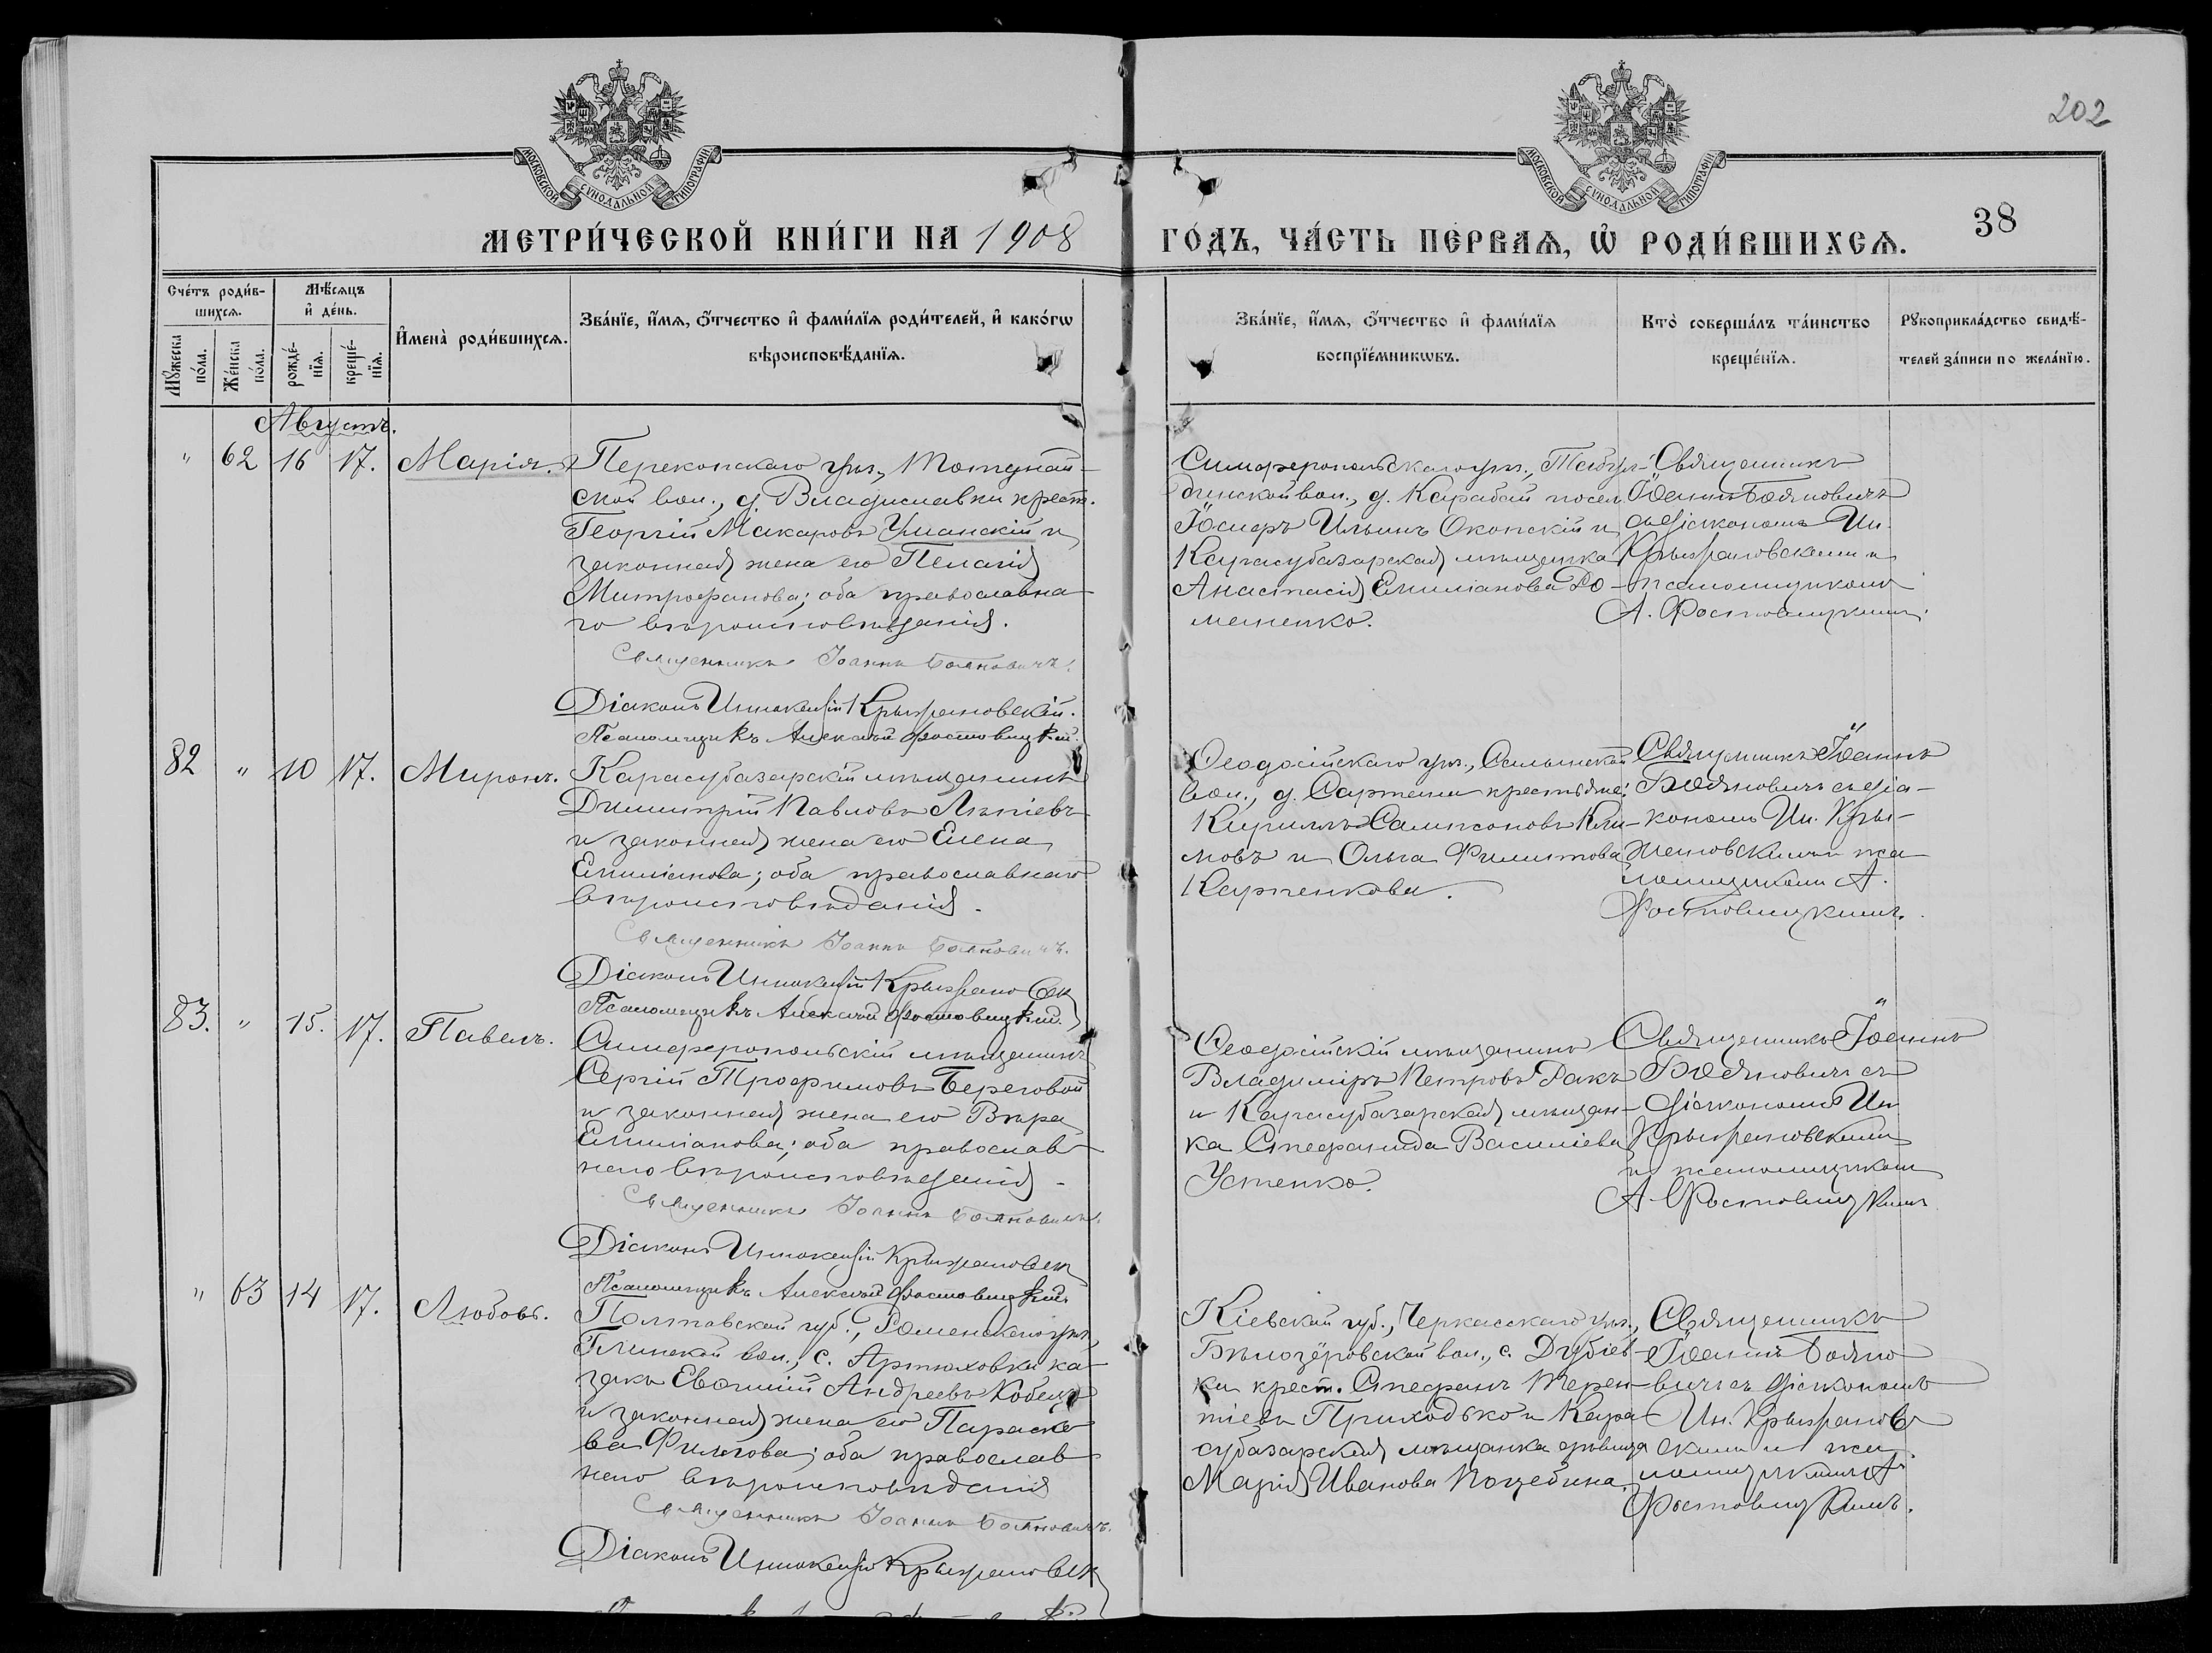 202
МОСКОВСКОЙ СѴНОДАЛЬНОЙ ТИПОГРАФІИ
МОСКОВСКОЙ СѴНОДАЛЬНОЙ ТИПОГРАФІИ
МЕТРИ́ЧЕСКОЙ КНИ́ГИ НА 1908
ГО́ДЪ, ЧА́СТЬ ПЕ́РВАѦ, Ѡ҆ РОДИ́ВШИХСѦ.
38
Сче́тъ роди́в-
шихсѧ.
Мꙋ́жеска по́ла.
Же́нска по́ла.
Мѣ́сѧцъ
и҆ де́нь.
рожде́-
нїѧ.
креще́-
нїѧ.
И҆мена̀ роди́вшихсѧ.
Зва́нїе, и҆́мѧ, ѻ҆́тчество и҆ фами́лїѧ роди́телей, и҆ како́гѡ
вѣроисповѣ́данїѧ.
Зва́нїе, и҆́мѧ, ѻ҆́тчество и҆ фами́лїѧ
воспрїе́мникѡвъ.
Кто̀ соверша́лъ та́инство
креще́нїѧ.
Рꙋкоприкла́дство свидѣ́-
телей за́писи по жела́нїю.
Августъ.
" 62 16 17. Марія.
Перекопскаго уѣз., Тотунай-
ской вол., д. Владиславки крест.
Георгій Макаровъ Уманскій и
законная жена его Пелагія
Митрофанова; оба православна-
го вѣроисповѣданія.
Священникъ Іоаннъ Бояновичъ.
Діаконъ Иннокентій Крыжановскій.
Псаломщикъ Алексѣй Фостовицкій.
Симферопольскаго уѣз., Табул-
динской вол., д. Карабай посел.
Іосифъ Ильинъ Оконскій и
Карасубазарская мѣщанка
Анастасія Емиліанова Ро-
мененко.
Священникъ
Іоаннъ Бояновичъ
съ діакономъ Ин.
Крыжановскимъ и
псаломщикомъ
А. Фостовицкимъ.
82 " 10 17. Миронъ.
Карасубазарскій мѣщанинъ
Димитрій Павловъ Лѣпіевъ
и законная жена его Елена
Емиліанова; оба православнаго
вѣроисповѣданія.
Священникъ Іоаннъ Бояновичъ.
Діаконъ Иннокентій Крыжановск
Псаломщикъ Алексѣй Фостовицкій.
Ѳеодосійскаго уѣз., Салынской
вол., д. Сартаны крестьяне:
Кириллъ Сампсоновъ Кли-
мовъ и Ольга Филиппова
Карпенкова.
Священникъ Іоаннъ
Бояновичъ съ діа-
кономъ Ин. Кры-
жановскимъ и пса
ломщикомъ А.
Фостовицкимъ.
83. " 15. 17. Павелъ.
Симферопольскій мѣщанинъ
Сергій Трофимовъ Береговой
и законная жена его Вѣра
Емиліанова; оба православ-
наго вѣроисповѣданія.
Священникъ Іоаннъ Бояновичъ.
Діаконъ Иннокентій Крыжановск
Псаломщикъ Алексѣй Фостовицкій.
Ѳеодосійскій мѣщанинъ
Владиміръ Петровъ Ракъ
и Карасубазарская мѣщан-
ка Стефанида Василіева
Устенко.
Священникъ Іоаннъ
Бояновичъ съ
діакономъ Ин
Крыжановскимъ
и псаломщикомъ
А. Фостовицкимъ
" 63 14 17. Любовь.
Полтавской губ., Роменскаго уѣз.,
Глинской вол., с. Артюховки ка-
закъ Евѳимій Андреевъ Кобец
и законная жена его Параске
ва Филипова; оба православ-
наго вѣроисповѣданія
Священникъ Іоаннъ Бояновичъ.
Діаконъ Иннокентій Крыжановск
Кіевской губ., Черкасскаго уѣз.,
Бѣлозёровской вол., с. Дубіев-
ки крест. Стефанъ Терен-
тіевъ Приходько и Кара-
субазарская мѣщанка дѣвица
Марія Иванова Поцебина.
Священникъ
Іоаннъ Бояно
вичъ съ діакономъ
Ин. Крыжанов
скимъ и пса
ломщикомъ А
Фостовицкимъ.